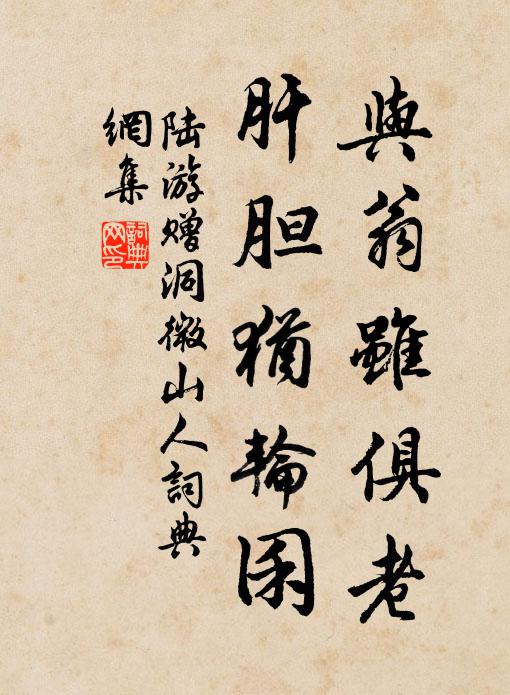 與翁雖俱老
肝胆猶輪囷
陆游赠洞微山人詞典
網集
詞典
网印